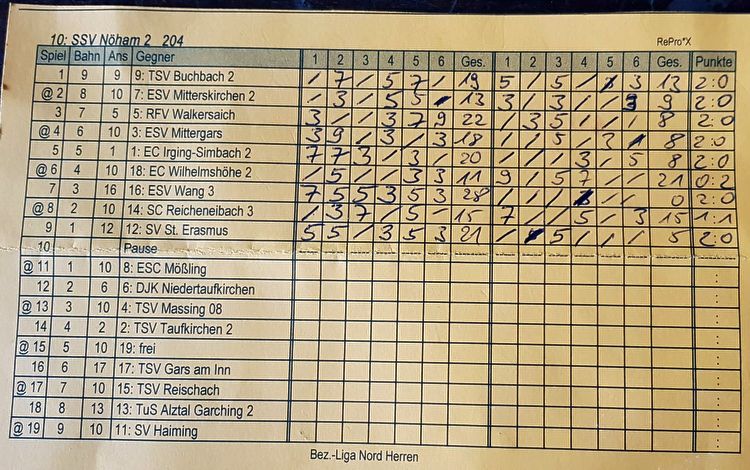 10: SSV Nöham 2 204 RePro*X
Spiel Bahn Ans Gegner 1 2 3 4 5 6 Ges. 1 2 3 4 5 6 Ges. Punkte
1 9 9 9: TSV Buchbach 2 / 7 / 5 7 / 19 5 / 5 / / 3 13 2:0
@ 2 8 10 7: ESV Mitterskirchen 2 / 3 / 5 5 / 13 3 / 3 / / 3 9 2:0
3 7 5 5: RFV Walkersaich 3 / / 3 7 9 22 / 3 5 / / / 8 2:0
@ 4 6 10 3: ESV Mittergars 3 9 / 3 / 3 18 / / 5 / 3 / 8 2:0
5 5 1 1: EC Irging-Simbach 2 7 7 3 / 3 / 20 / / / 3 / 5 8 2:0
@ 6 4 10 18: EC Wilhelmshöhe 2 / 5 / / 3 3 11 9 / 5 7 / / 21 0:2
7 3 16 16: ESV Wang 3 7 5 5 3 5 3 28 / / / / / 0 2:0
@ 8 2 10 14: SC Reicheneibach 3 / 3 7 / 5 / 15 7 / / 5 / 3 15 1:1
9 1 12 12: SV St. Erasmus 5 5 / 3 5 3 21 / 5 / / / 5 2:0
10 Pause :
@ 11 1 10 8: ESC Mößling :
12 2 6 6: DJK Niedertaufkirchen :
@ 13 3 10 4: TSV Massing 08 :
14 4 2 2: TSV Taufkirchen 2 :
@ 15 5 10 19: frei :
16 6 17 17: TSV Gars am Inn :
@ 17 7 10 15: TSV Reischach :
18 8 13 13: TuS Alztal Garching 2 :
@ 19 9 10 11: SV Haiming :
Bez.-Liga Nord Herren